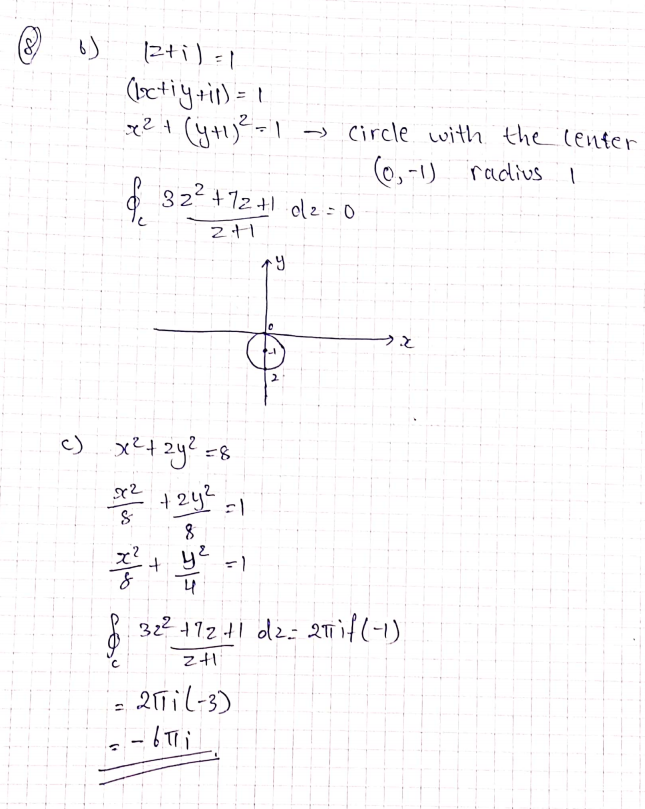 (8) b) |z+i) = 1
(|x+iy+i|) = 1
x² + (y+1)² = 1 → circle with the center
(0,-1) radius 1
∮c 3z² + 7z + 1 / z+1 dz = 0
y
0
x
-1
2
c) x² + 2y² = 8
x²/8 + 2y²/8 = 1
x²/8 + y²/4 = 1
∮c 3z² + 7z + 1 / z+1 dz = 2πif(-1)
= 2πi(-3)
= -6πi